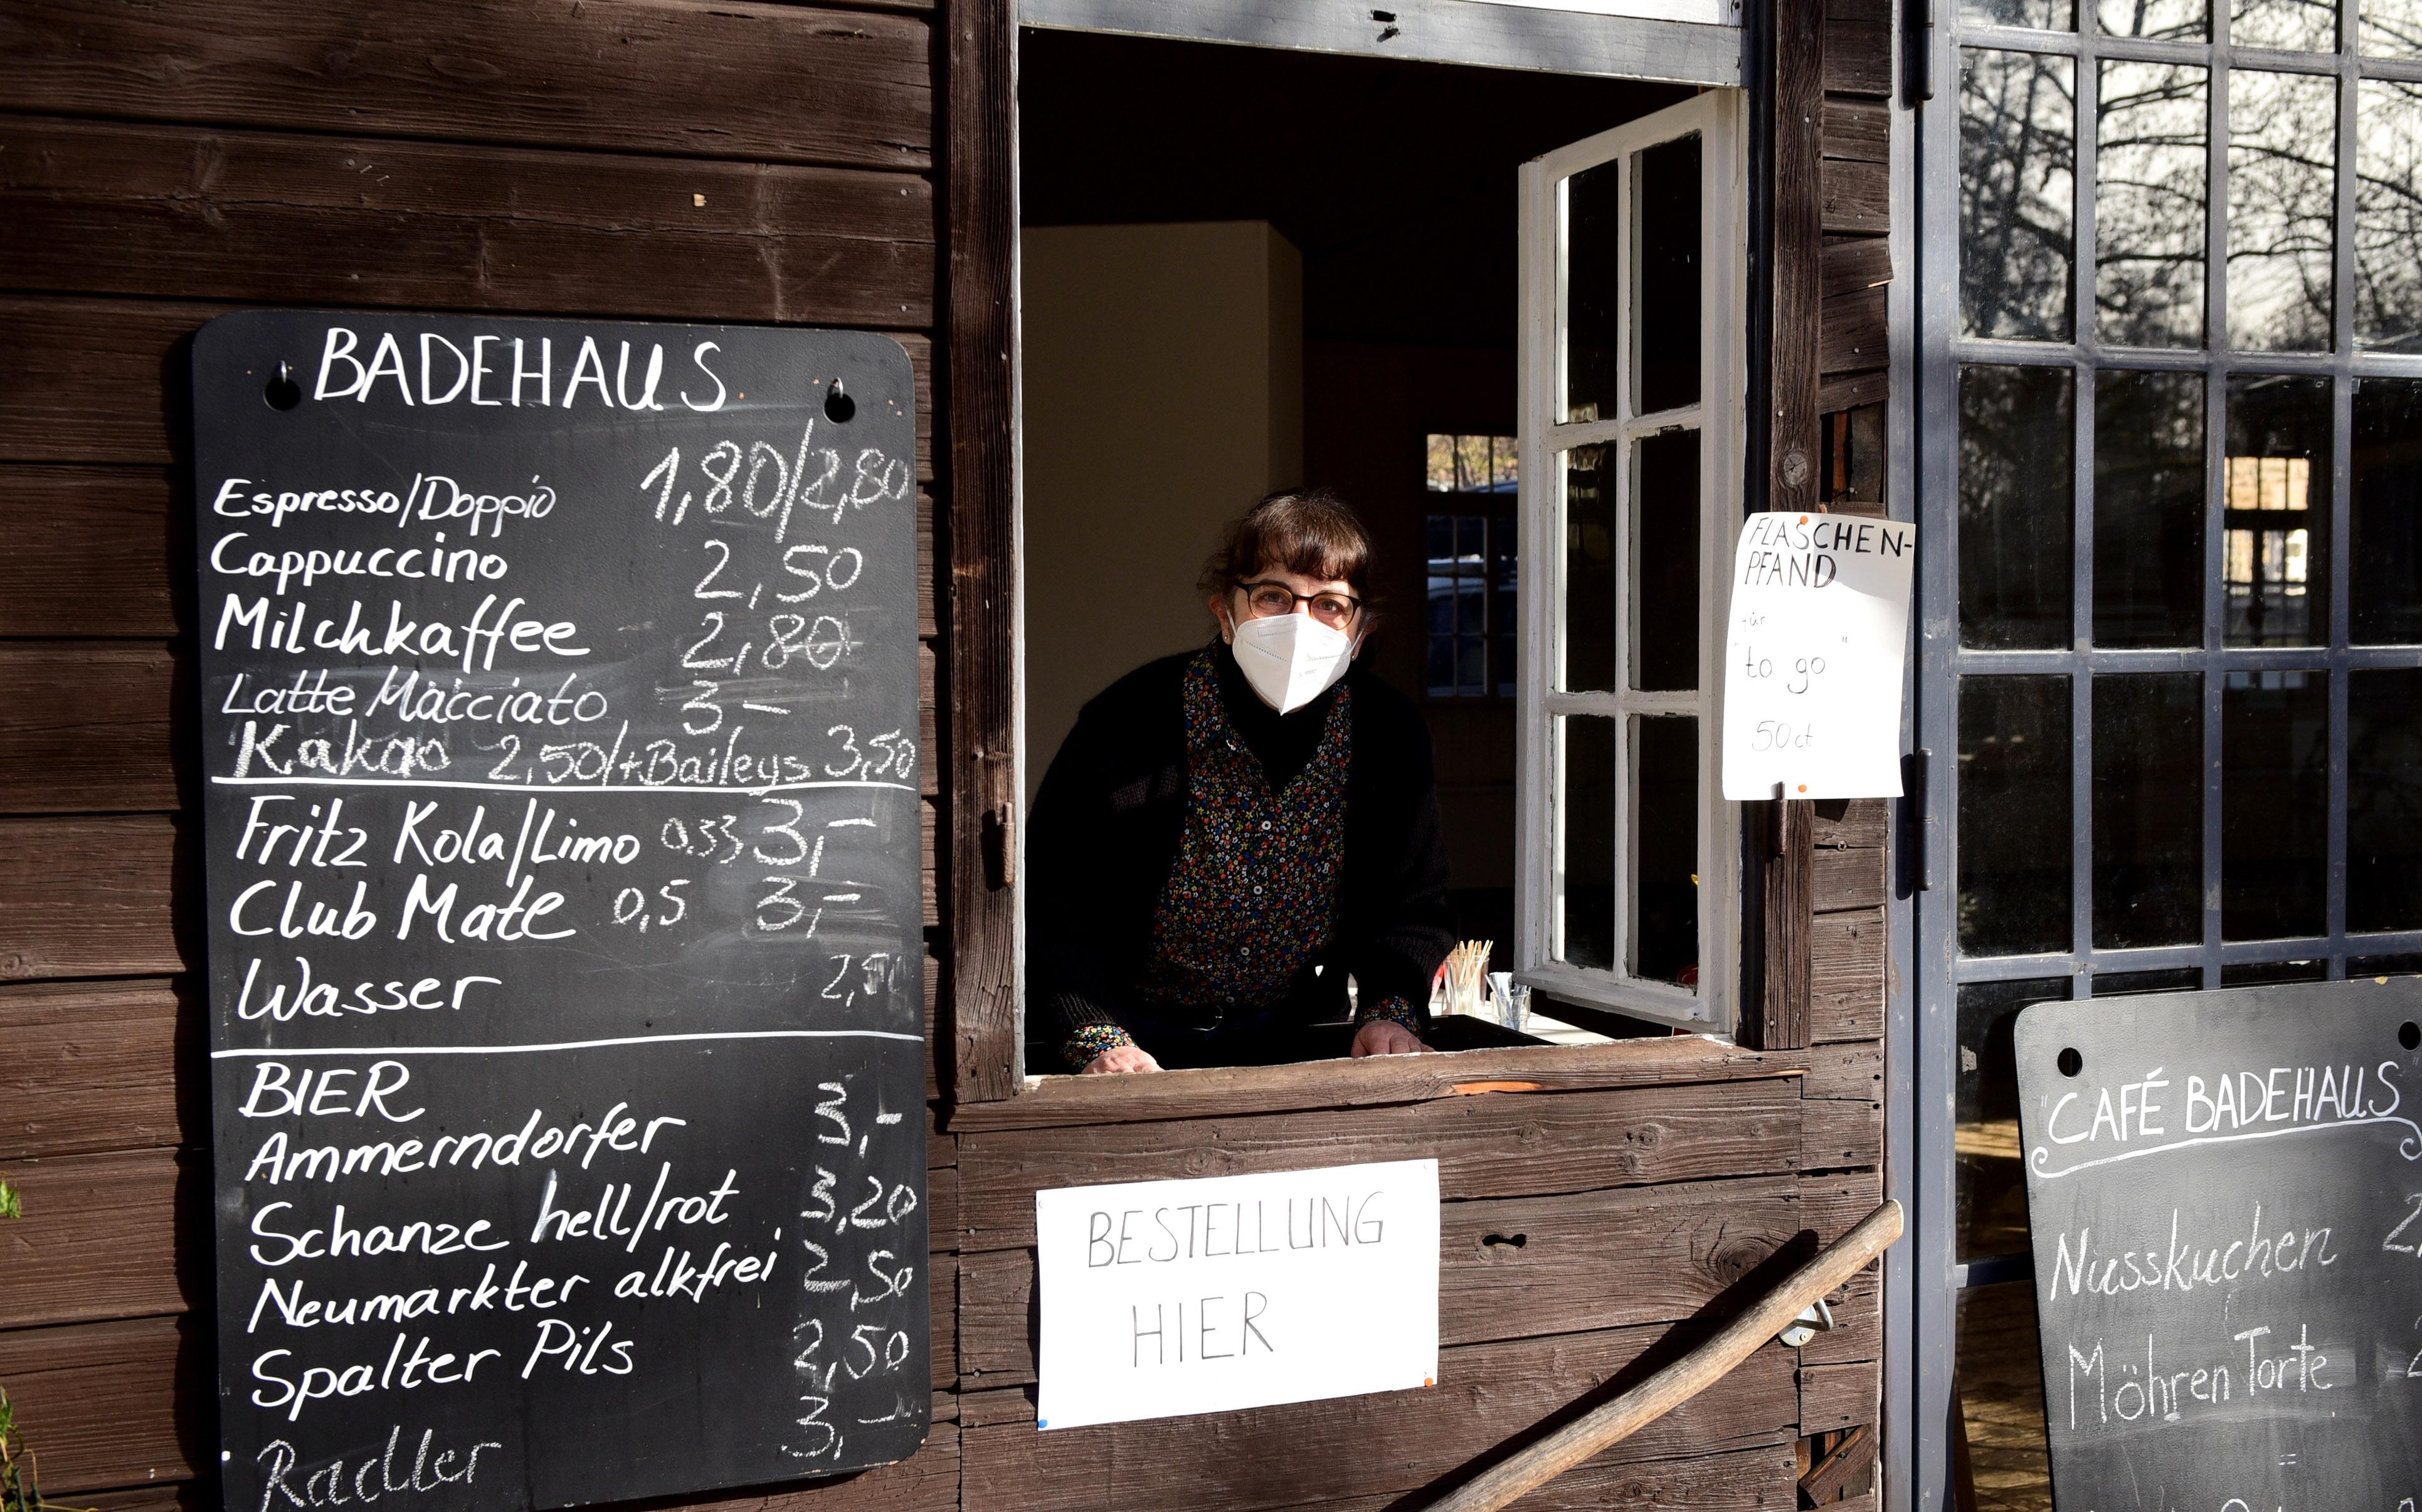 BADEHAUS
Espresso/Doppio 1,80/2,80
Cappuccino 2,50
Milchkaffee 2,80
Latte Macciato 3,-
Kakao 2,50/+Baileys 3,50
Fritz Kola/Limo 0,33 3,-
Club Mate 0,5 3,-
Wasser
BIER
Ammerndorfer 3,-
Schanze hell/rot 3,20
Neumarkter alkfrei 2,50
Spalter Pils 2,50
Radler 3,-
FLASCHEN-
PFAND
für
"to go"
50 ct
BESTELLUNG
HIER
"CAFÉ BADEHAUS"
Nusskuchen
Möhren Torte